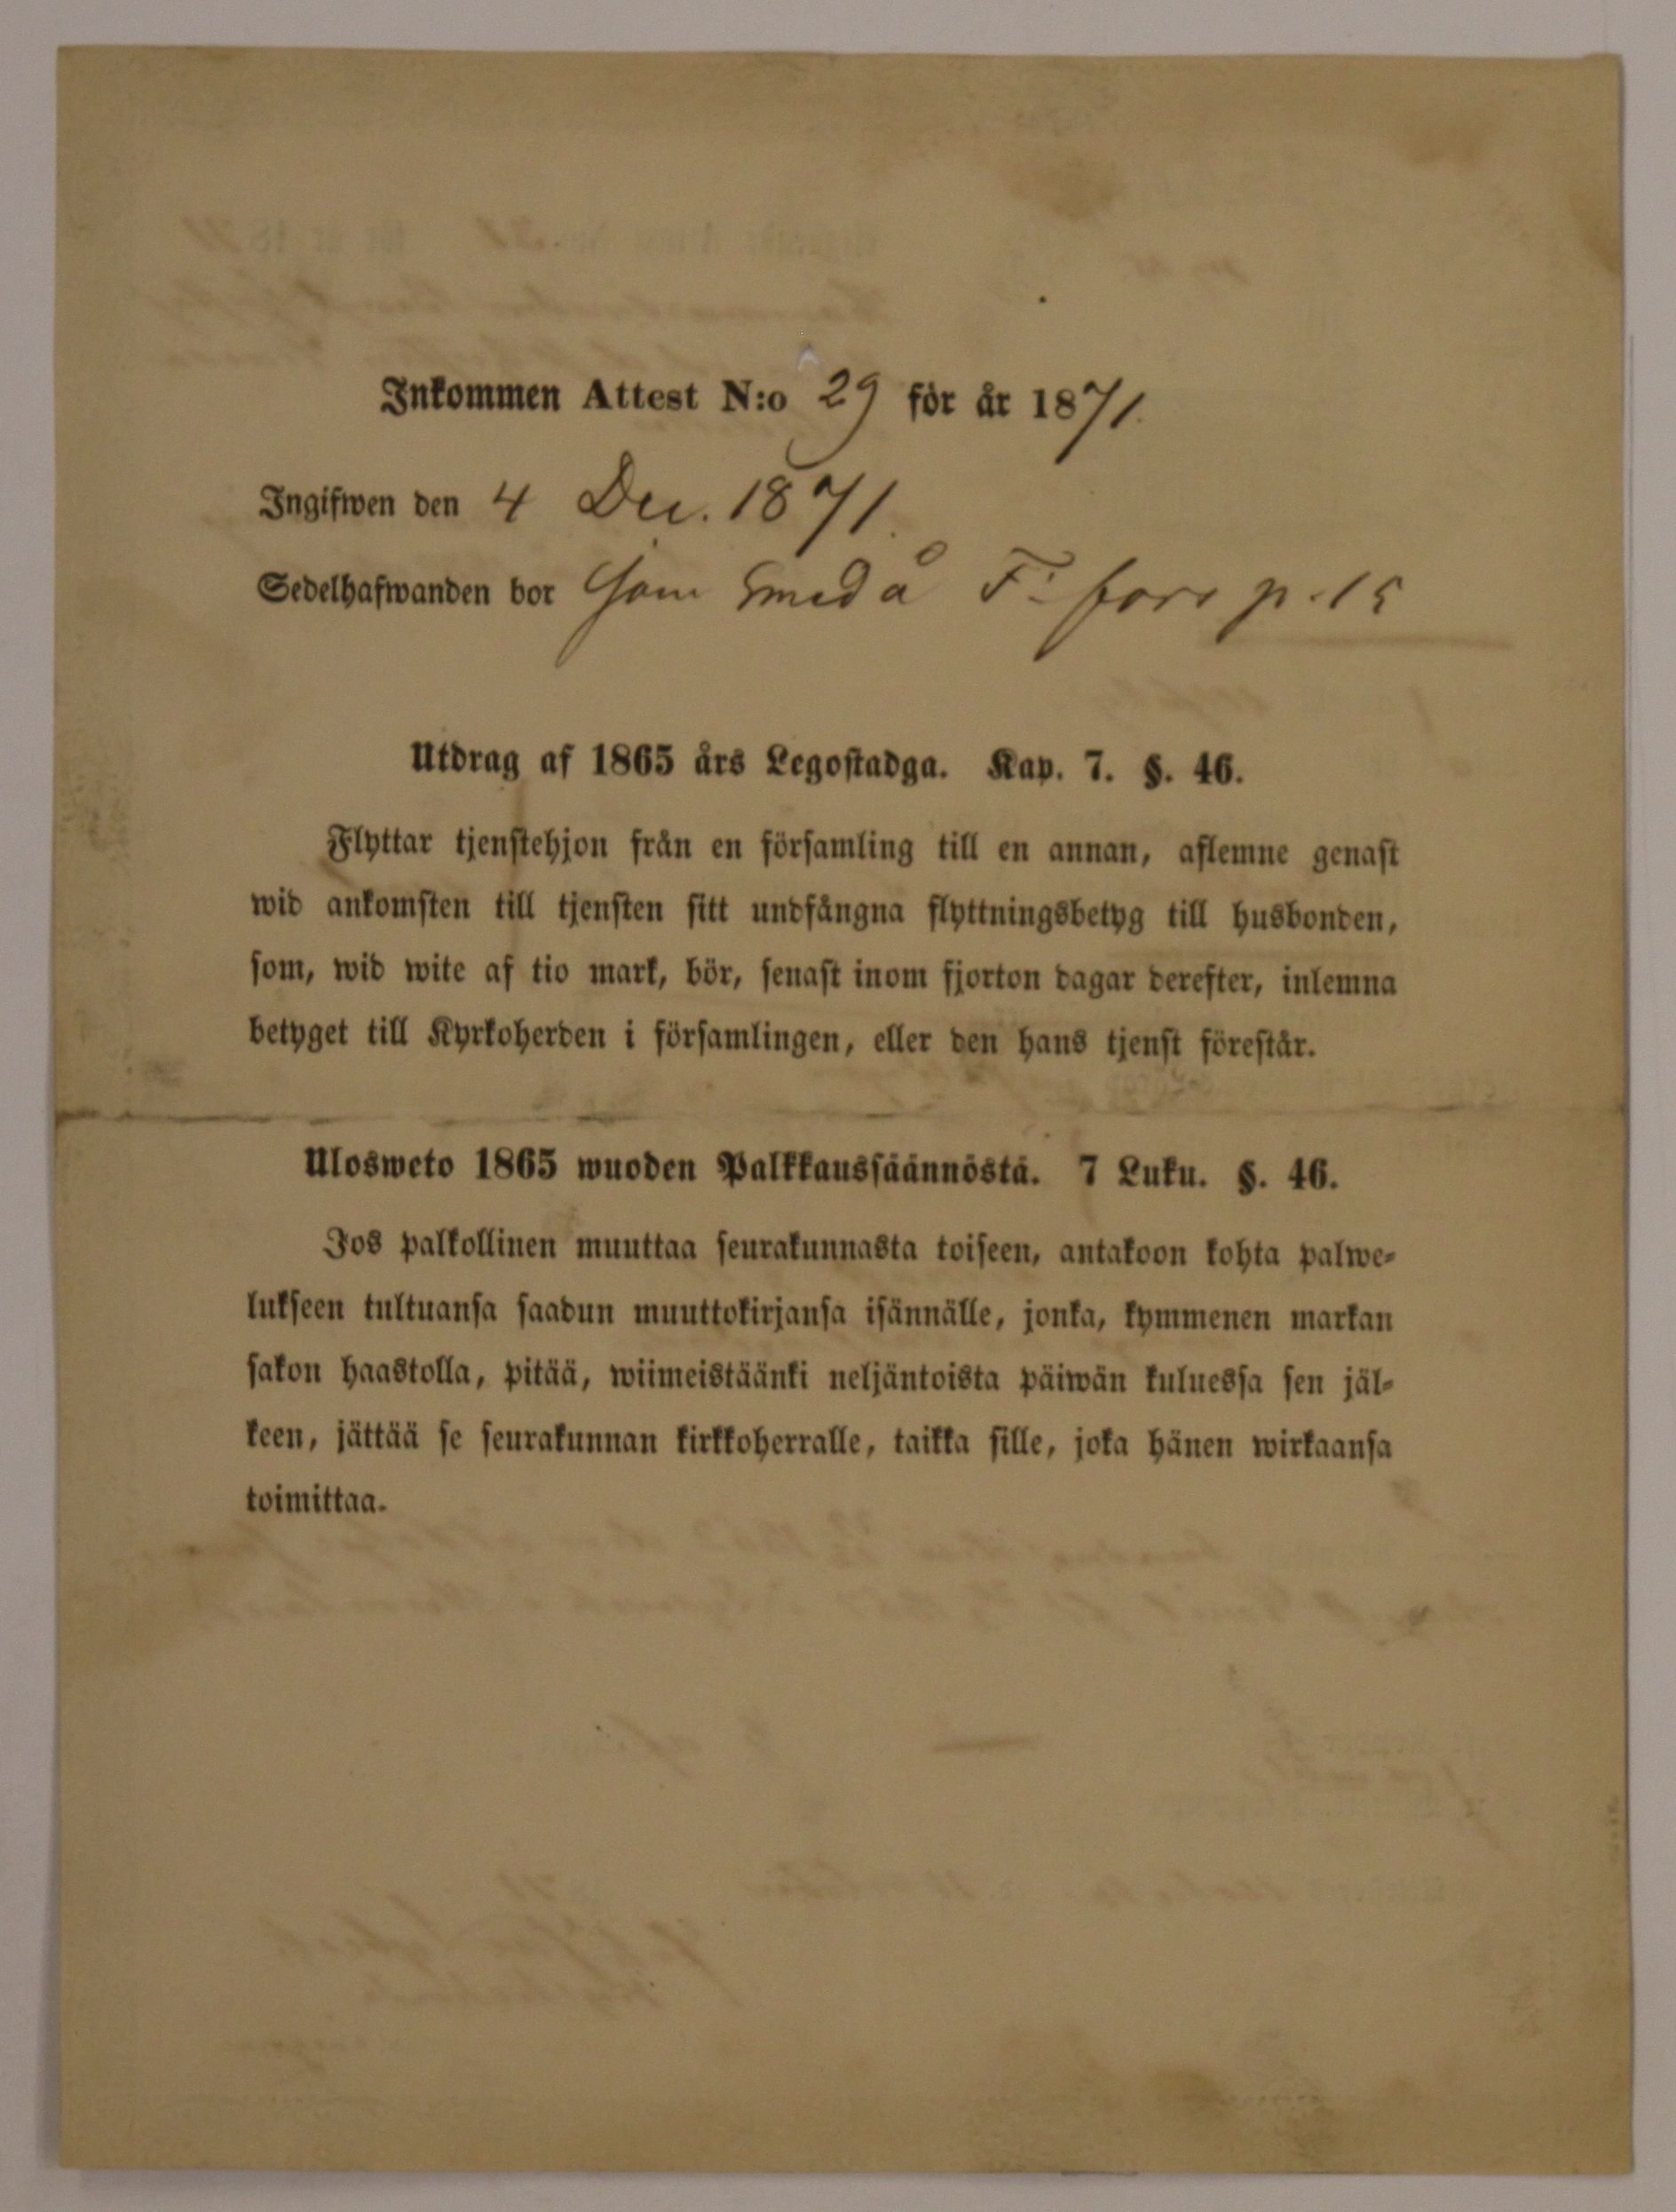 Inkommen Attest N:o 29 för år 1871.
Ingifwen den 4 Dec. 1871.
Sedelhafwanden bor som Smed å F:fors p. 15
Utdrag af 1865 års Legostadga. Kap. 7. §. 46.
Flyttar tjenstehjon från en församling till en annan, aflemne genast
wid ankomsten till tjensten sitt undfångna flyttningsbetyg till husbonden,
som, wid wite af tio mark, bör, senast inom fjorton dagar derefter, inlemna
betyget till Kyrkoherden i församlingen, eller den hans tjenst förestår.
Ulosweto 1865 wuoden Palkkaussäännöstä. 7 Luku. §. 46.
Jos palkollinen muuttaa seurakunnasta toiseen, antakoon kohta palwe-
lukseen tultuansa saadun muuttokirjansa isännälle, jonka, kymmenen markan
sakon haastolla, pitää, wiimeistäänki neljäntoista päiwän kuluessa sen jäl-
keen, jättää se seurakunnan kirkkoherralle, taikka sille, joka hänen wirkaansa
toimittaa.